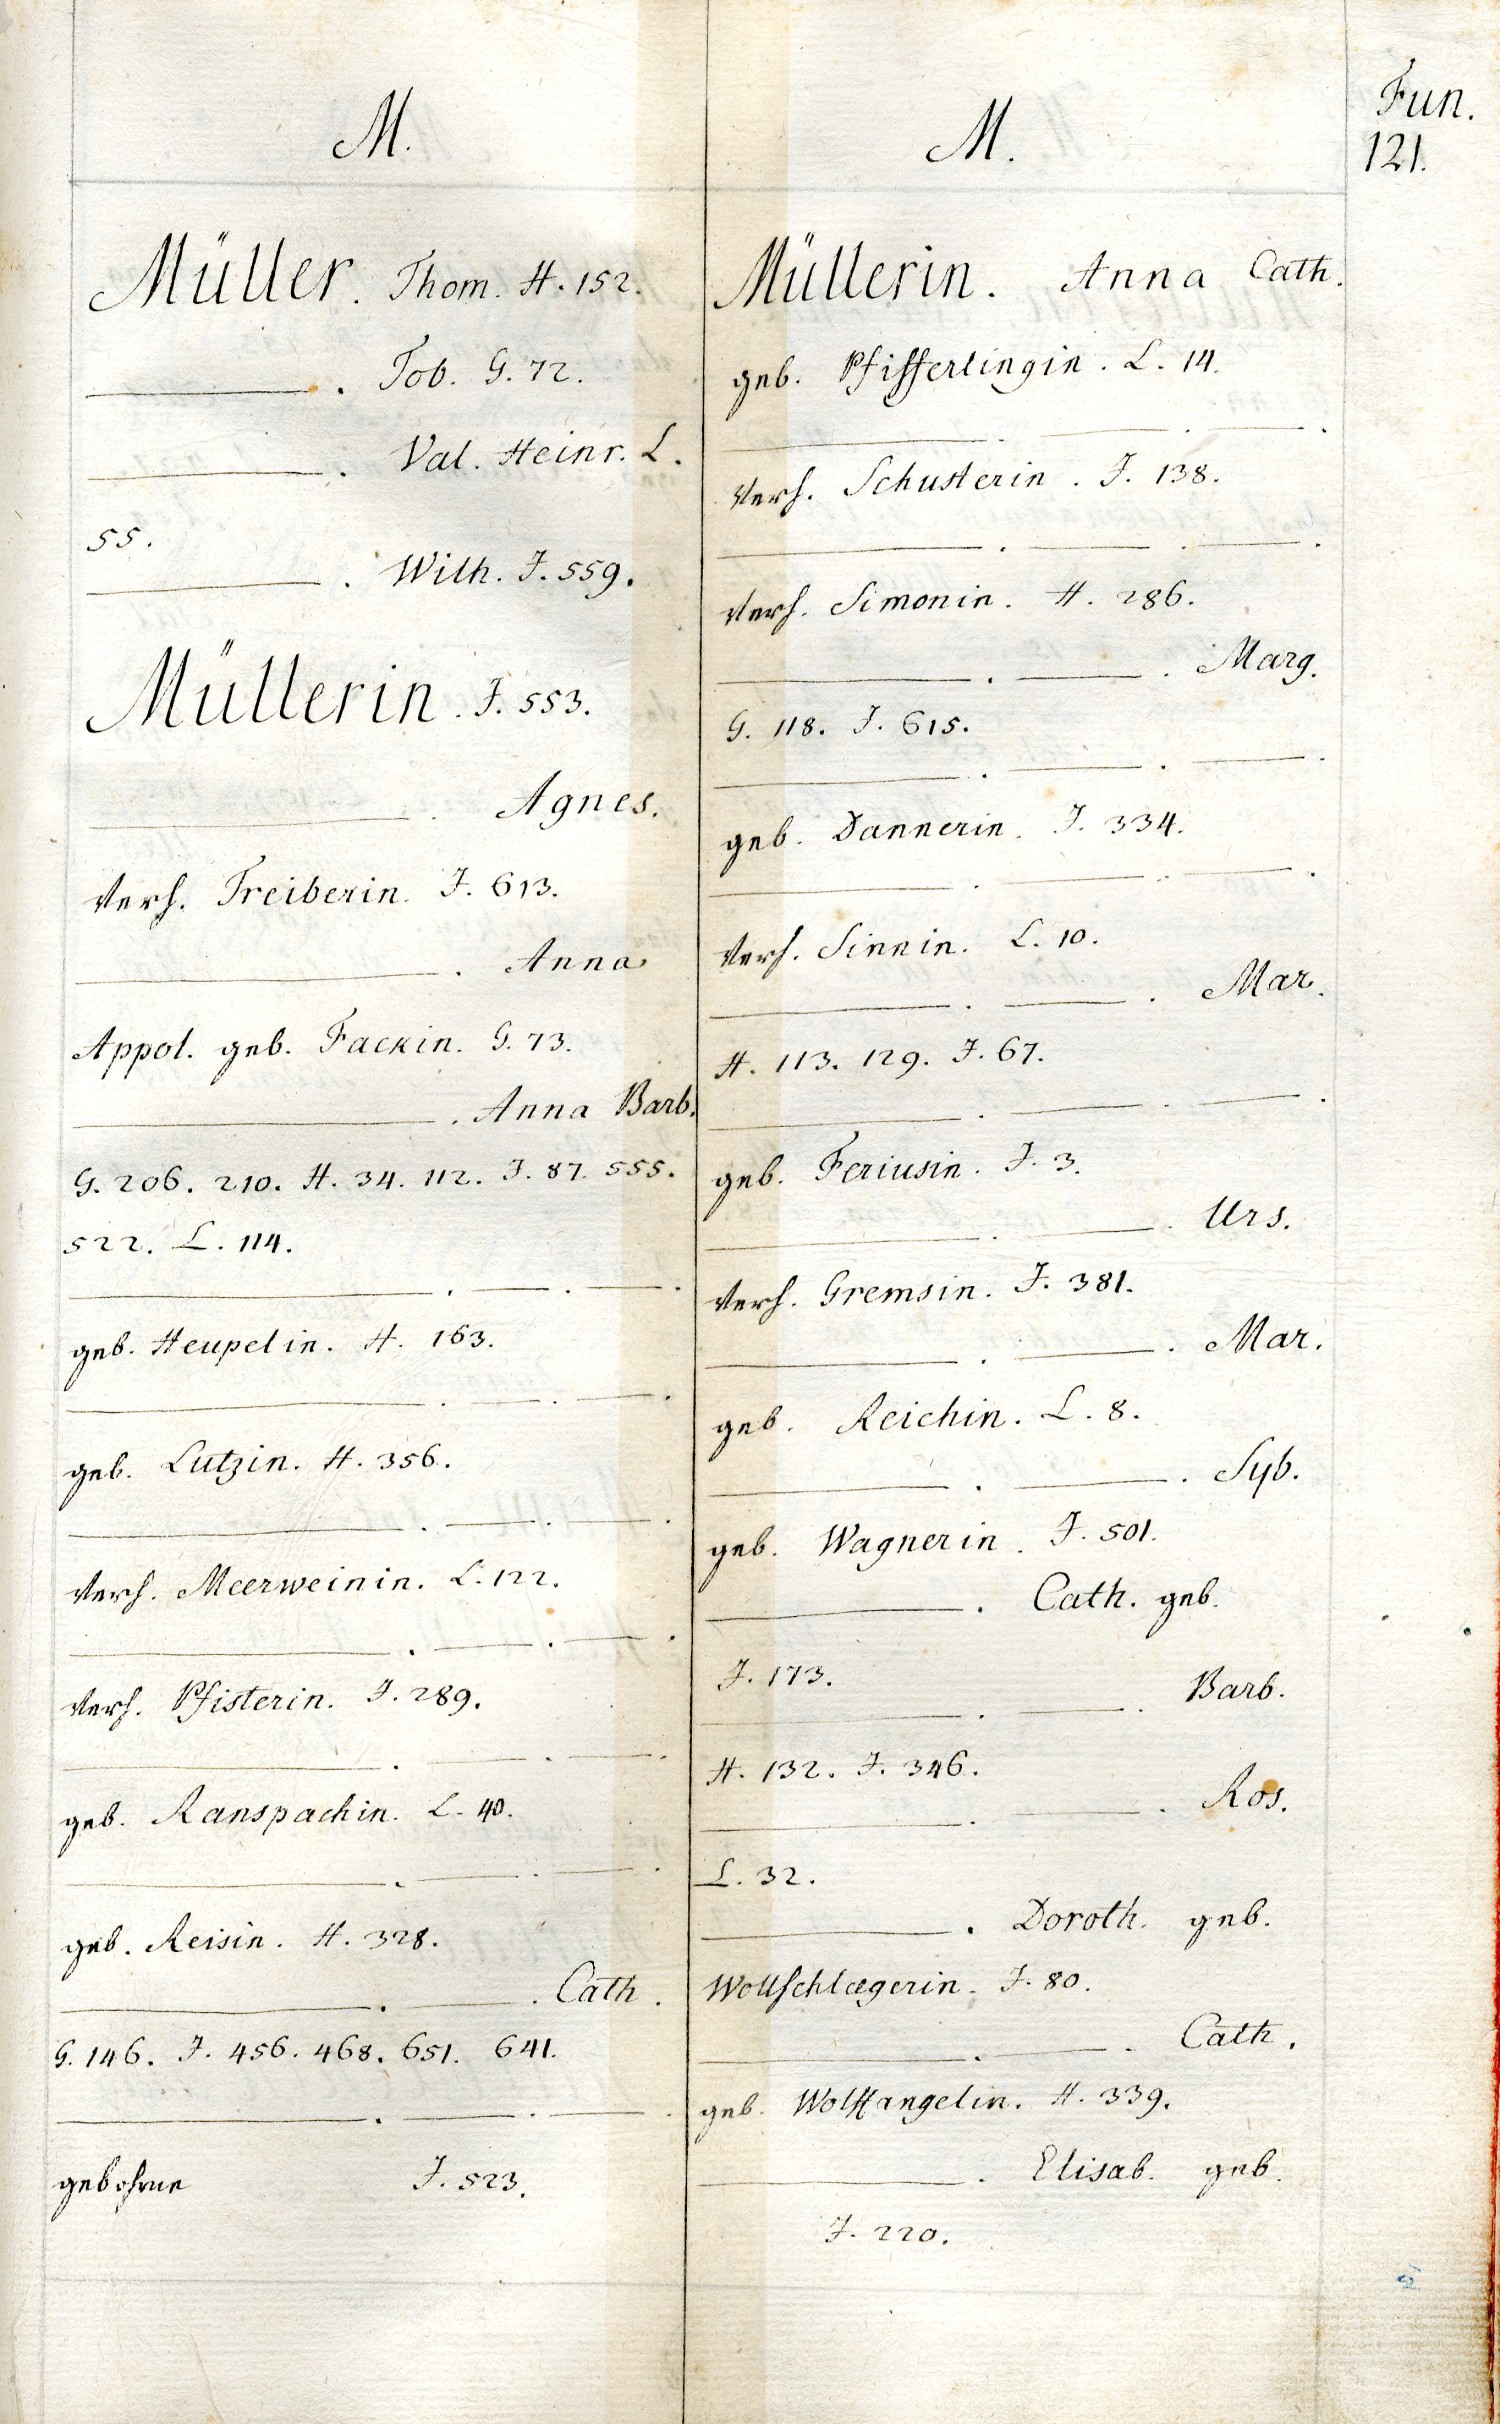 Fun.
121.
M.
Müller. Thom. H. 152.
———. Tob. G. 72.
———. Val. Heinr. L.
55.
———. Wilh. J. 559.
Müllerin. J. 553.
———. Agnes.
verh. Treiberin. J. 613.
———. Anna
Appol. geb. Fackin. G. 73.
———. Anna Barb.
G. 206. 210. H. 34. 112. J. 87. 555.
522. L. 114.
———. ———. ———.
geb. Heupelin. H. 163.
———. ———. ———.
geb. Lutzin. H. 356.
———. ———. ———.
verh. Meerweinin. L. 122.
———. ———. ———.
verh. Pfisterin. J. 289.
———. ———. ———.
geb. Ranspachin. L. 40.
———. ———. ———.
geb. Reisin. H. 328.
———. ———. Cath.
G. 146. J. 456. 468. 651. 641.
———. ———. ———.
gebohrne J. 523.
M.
Müllerin. Anna Cath.
geb. Pfifferlingin. L. 14.
———. ———. ———.
verh. Schusterin. J. 138.
———. ———. ———.
verh. Simonin. H. 286.
———. ———. Marg.
G. 118. J. 615.
———. ———. ———.
geb. Dannerin. J. 334.
———. ———. ———.
verh. Sinnin. L. 10.
———. ———. Mar.
H. 113. 129. J. 67.
———. ———. ———.
geb. Feriusin. J. 3.
———. ———. Urs.
verh. Gremsin. J. 381.
———. ———. Mar.
geb. Reichin. L. 8.
———. ———. Syb.
geb. Wagnerin. J. 501.
———. Cath. geb.
J. 173.
———. ———. Barb.
H. 132. J. 346.
———. ———. Ros.
L. 32.
———. Doroth. geb.
Wollschlægerin. J. 80.
———. ———. Cath.
geb. Wolffangelin. H. 339.
———. Elisab. geb.
J. 220.